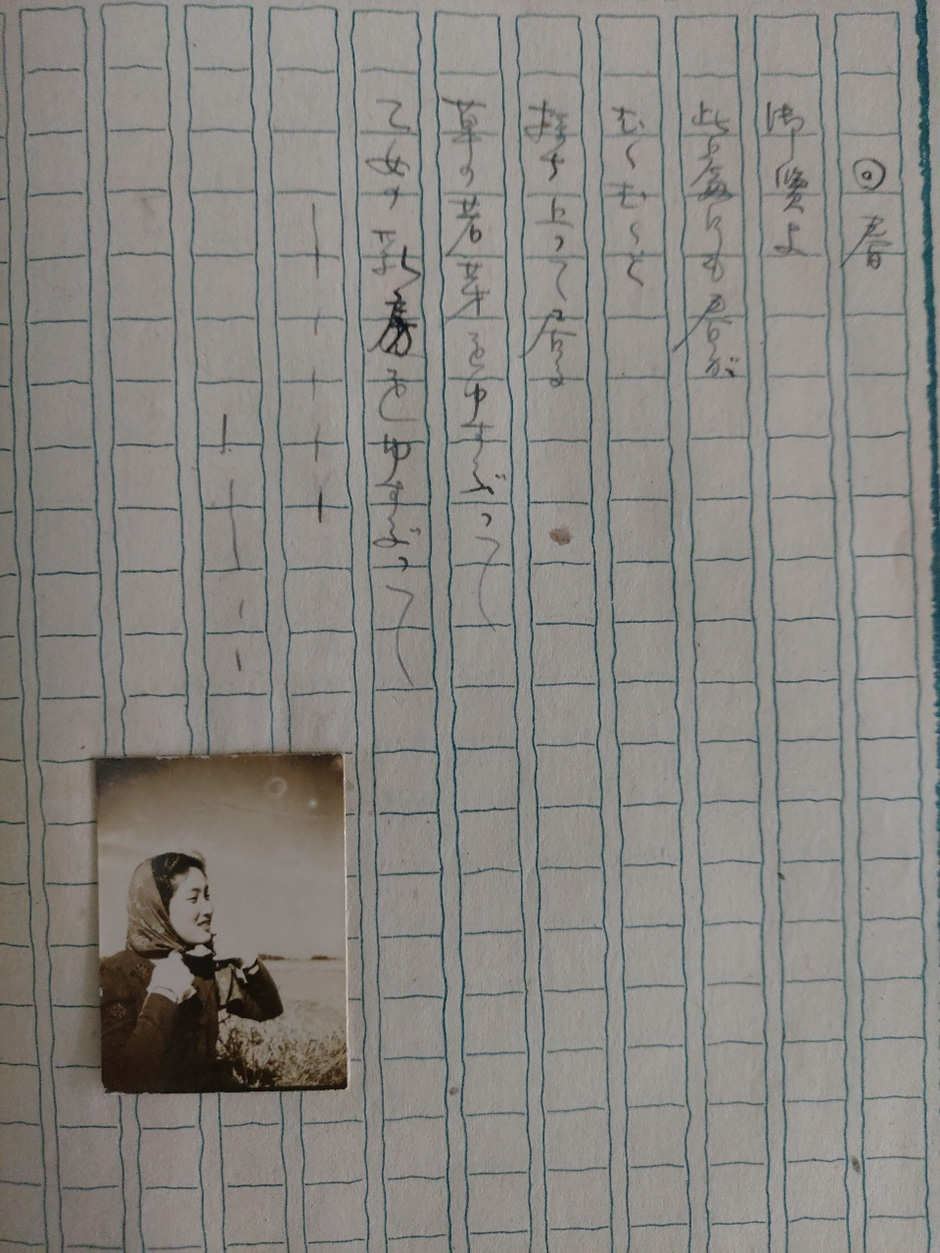 ◎春
御覧よ
此處にも春が
むくむくと
持ち上って居る
草の若芽をゆすぶって
乙女の乳房をゆすぶって